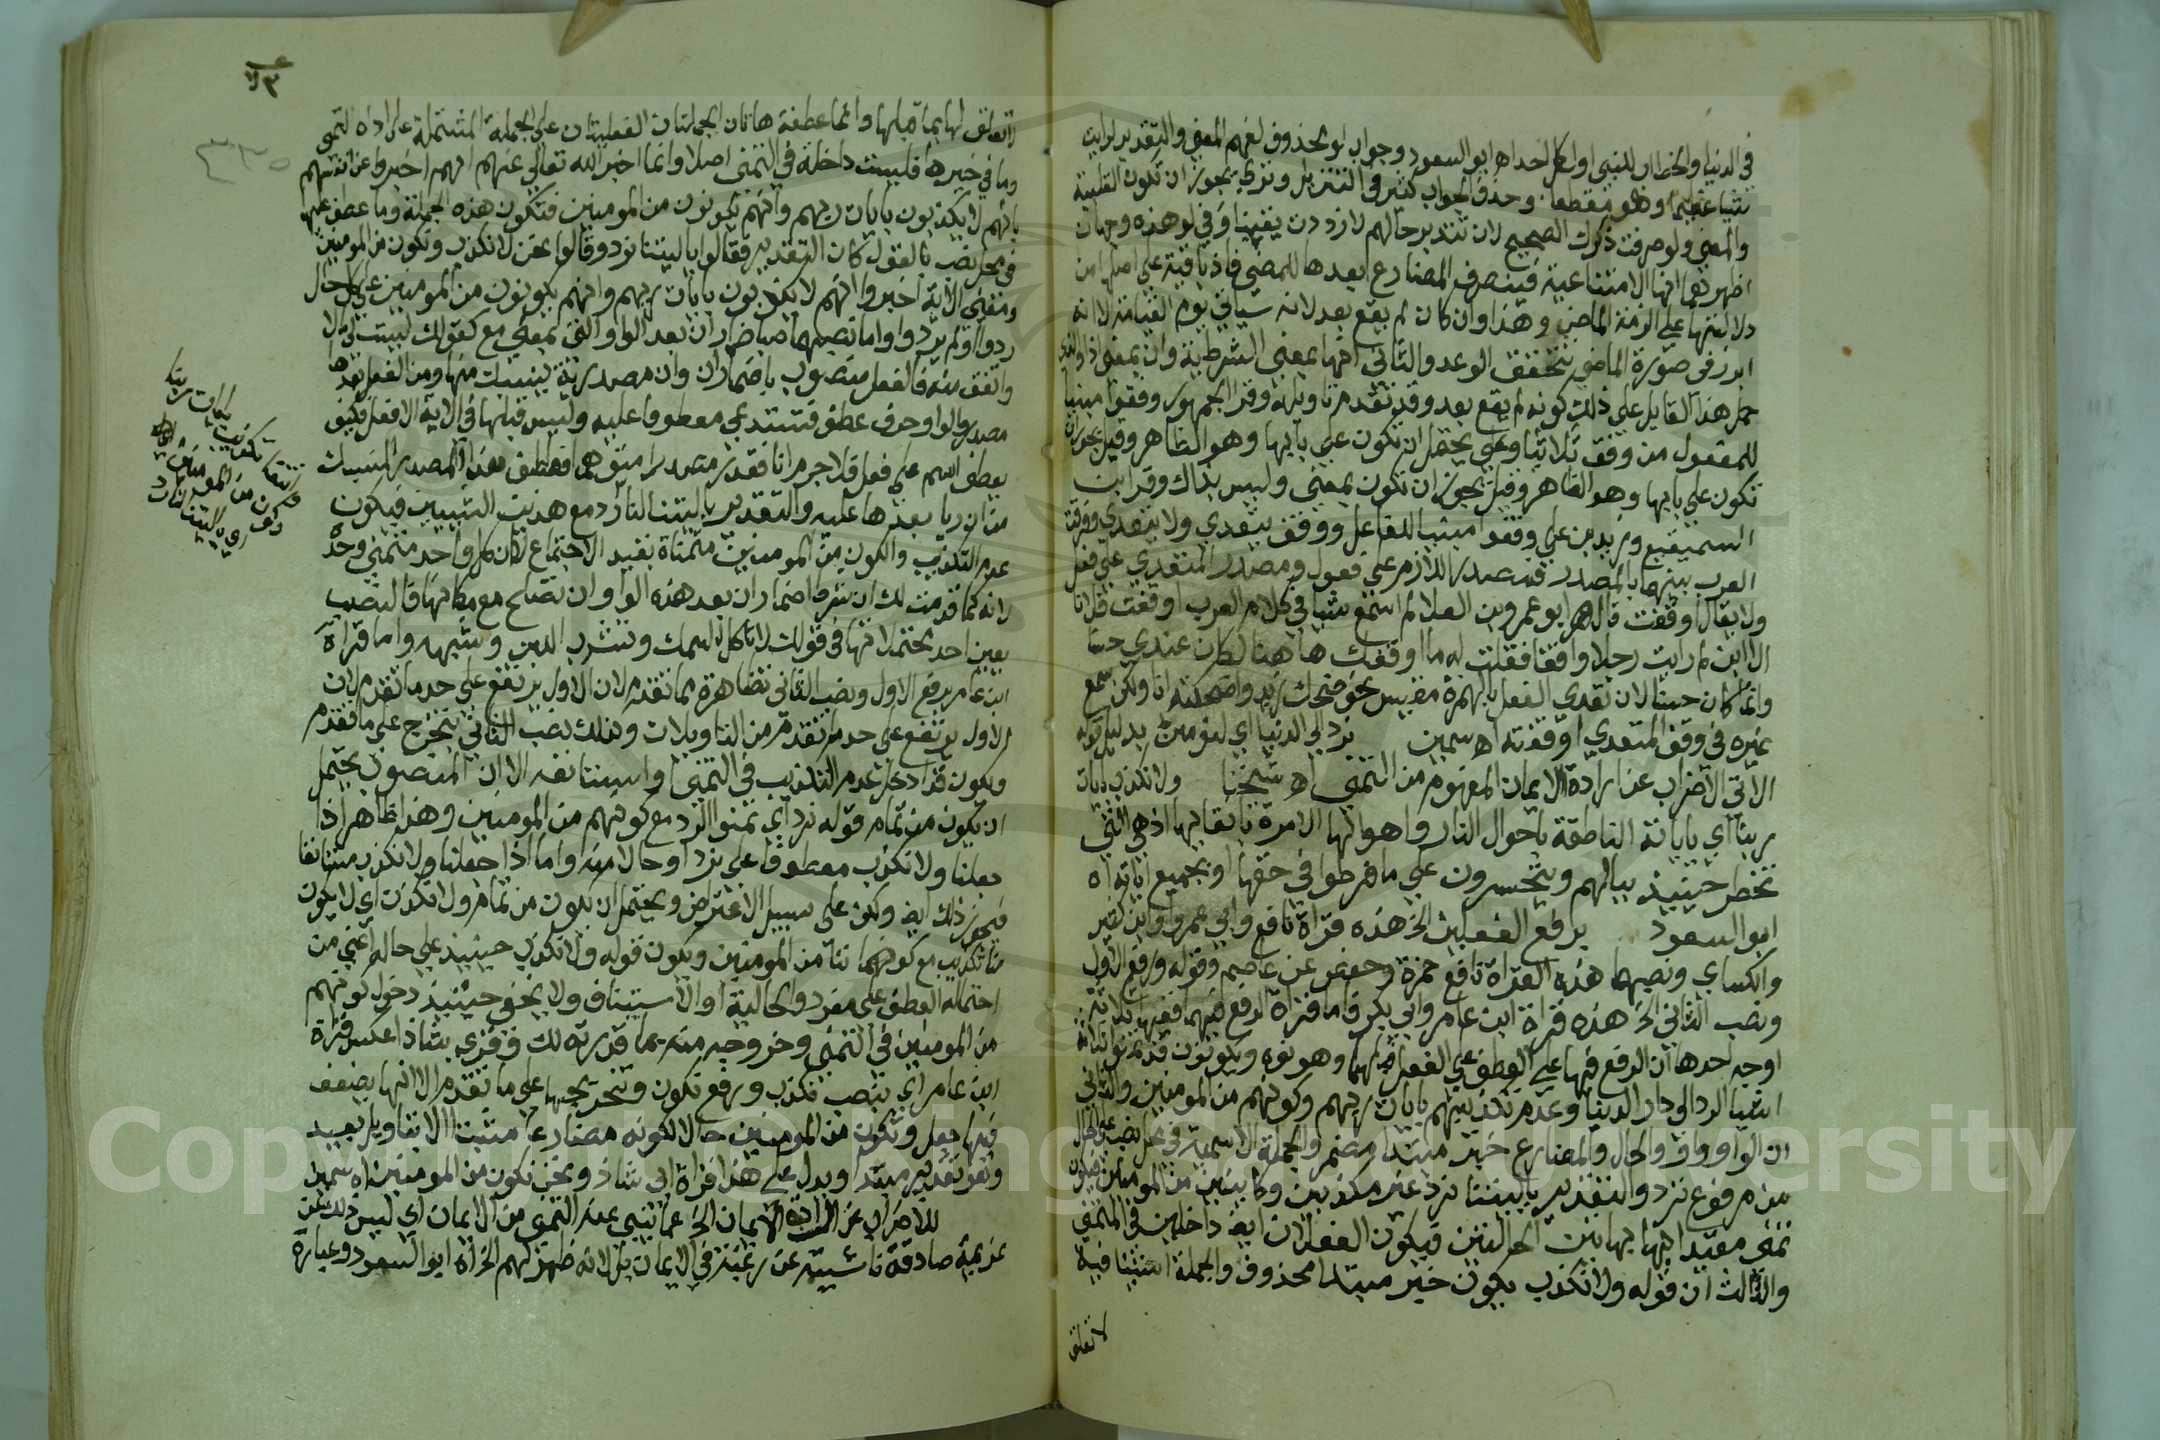 في الدنيا والخطاب للنبي او لكل احد اهـ ابو السعود وجواب لو محذوف لفهم المعنى والتقدير لرايت
شيا عظيما وهو مفظعا وحذف الجواب كثير في التنزيل وترى يجوز ان تكون القلبية
والمعنى ولو صرفت فكرك الصحيح لان تتدبر حالهم لازددت يقينا وفي لو هذه وجهان
اظهرهما انها الامتناعية فينصرف المضارع بعدها للمضي فاذ باقية على اصلها من
دلالتها على الزمن الماضي وهذا وان كان لم يقع بعد لانه سياتي يوم القيامة الا انه
ابرز في صورة الماضي لتحقق الوعد والثاني انها بمعنى الشرطية وان بمعنى اذا والذي
حمل هذا القايل على ذلك كونه لم يقع بعد وقد تقدم تاويله وقرا الجمهور وقفوا مبنيا
للمفعول من وقف ثلاثيا وعلى يحتمل ان تكون على بابها وهو الظاهر وقيل يجوز ان
تكون على بابها وهو الظاهر وقيل يجوز ان تكون بمعنى في وليس بذاك وقرا ابن
السميفع وزيد بن علي وقفوا مبنيا للفاعل ووقف يتعدى ولا يتعدى وفرقت
العرب بينهما بالمصدر فمصدر اللازم على فعول ومصدر المتعدي على فعل
ولا يقال اوقفت قال ابو عمرو بن العلا لم اسمع شيا في كلام العرب اوقفت فلانا
الا اني لو رايت رجلا واقفا فقلت له ما اوقفك هاهنا لكان عندي حسنا
وانما كان حسنا لان تعدي الفعل بالهمزة مقيس نحو ضحك زيد واضحكته انا ولكن سمع
غيره في وقف المتعدي اوقفته اهـ سمين نرد الى الدنيا اي لنؤمن بدليل قوله
الاتي الاضراب عن ارادة الايمان المفهوم من التمني اهـ شيخنا ولا نكذب بايات
ربنا اي باياته الناطقة باحوال النار واهوالها الامرة باتقائها اذ هي التي
تخطر حينيذ ببالهم ويتحسرون على ما فرطوا في حقها او بجميع اياته اهـ
ابو السعود برفع الفعلين الخ هذه قراة نافع وابي عمرو وابن كثير
والكساي ونصبهما هذه القراة نافع حمزة وحفص عن عاصم وقوله ورفع الاول
ونصب الثاني الخ هذه قراة ابن عامر وابي بكر فاما قراة الرفع فيهما ففيها ثلاثة
اوجه احدها ان الرفع فيهما على العطف على الفعل قبلهما وهو نرد ويكونون قد تمنوا ثلاثة
اشيا الرد الى دار الدنيا وعدم تكذيبهم بايات ربهم وكونهم من المومنين والثاني
ان الواو واو الحال والمضارع خبر مبتدا مضمر والجملة الاسمية في محل نصب على الحال
من مرفوع نرد والتقدير يا ليتنا نرد غير مكذبين وكاينين من المومنين فيكون
تمني مقيدا بهاتين الحالتين فيكون الفعلان ايضا داخلين في التمني
والثالث ان قوله ولا نكذب يكون خبر مبتدا محذوف والجملة استينافية
لا تعلق
لا تعلق لها بما قبلها وانما عطفت هاتان الجملتان الفعليتان على الجملة المشتملة على اداة التمني
وما في خبرها فليست داخلة في التمني اصلا وانما اخبر الله تعالى عنهم انهم اخبروا عن انفسهم
بانهم لا يكذبون بايات ربهم وانهم يكونون من المومنين فتكون هذه الجملة وما عطف عليها
في محل نصب بالقول كان التقدير فقالوا يا ليتنا نرد وقالوا نحن لا نكذب ونكون من المومنين
ومعنى الاية اخبروا انهم لا يكذبون بايات ربهم وانهم يكونون من المومنين على كل حال
ردوا او لم يردوا واما نصبهما فباضمار ان بعد الواو التي بمعنى مع كقولك ليت لي مالا
وانفق منه فالفعل منصوب باضمار ان وان مصدرية ينسبك منها ومن الفعل بعدها
مصدر والواو حرف عطف فتستدعي معطوفا عليه وليس قبلها في الاية الا فعل فكيف
يعطف اسم على فعل فلا جرم انا نقدر مصدرا متوهما فعطف هذا المصدر المنسبك
من ان وما بعدها عليه والتقدير يا ليتنا لنا رد مع هذين الشيين فيكون
عدم التكذيب والكون من المومنين متمناة بقيد الاجتماع لا كان كل واحد متمني وحده
لانه كما قدمت لك ان شرط اضمار ان بعد هذه الواو ان تصلح مع مكانها فالنصب
يعين احد محتملاتها في قولك لا تاكل السمك وتشرب اللبن وشبهه واما قراة
ابن عامر برفع الاول ونصب الثاني فظاهرة مما تقدم لان الاول يرتفع على حد ما تقدم لان
الاول يرتفع على حد ما تقدم من التاويلات وكذلك نصب الثاني يتخرج على ما تقدم
ويكون قد ادخل عدم التكذيب في التمني او استانفه الا ان المنصوب يحتمل
ان يكون من تمام قوله نرد اي تمنوا الرد مع كونهم من المومنين وهذا ظاهر اذا
جعلنا ولا نكذب معطوفا على نرد او حالا منه واما اذا جعلنا ولا نكذب مستانفا
فيجوز ذلك ايضا ولكن على سبيل الاعتراض ويحتمل ان يكون من تمام ولا نكذب اي لا يكون
منا تكذيب مع كوننا من المومنين ويكون قوله ولا نكذب حينيذ على حاله اعني من
احتماله العطف على نرد والحالية او الاستيناف ولا يخفى حينيذ دخول كونهم
من المومنين في التمني وخروجه منه بما قررته لك وقري شاذا عكس قراة
ابن عامر اي بنصب نكذب ورفع نكون وتخريجها على ما تقدم الا انها يضعف
فيها جعل ونكون من المومنين حالا لكونه مضارعا مثبتا الا بتاويل بعيد
وهو تقدير مبتدا ويدل على هذا قراة ابي شاذ ونحن نكون من المومنين اهـ سمين
للاضراب عن ارادة الايمان الخ عما ينبي عنه التمني من الايمان اي ليس ذلك عن
عزيمة صادقة ناشية عن رغبة في الايمان بل لانه ظهر لهم الخ اهـ ابو السعود وعبارة
٣٣٥
Copyright © King Saud University